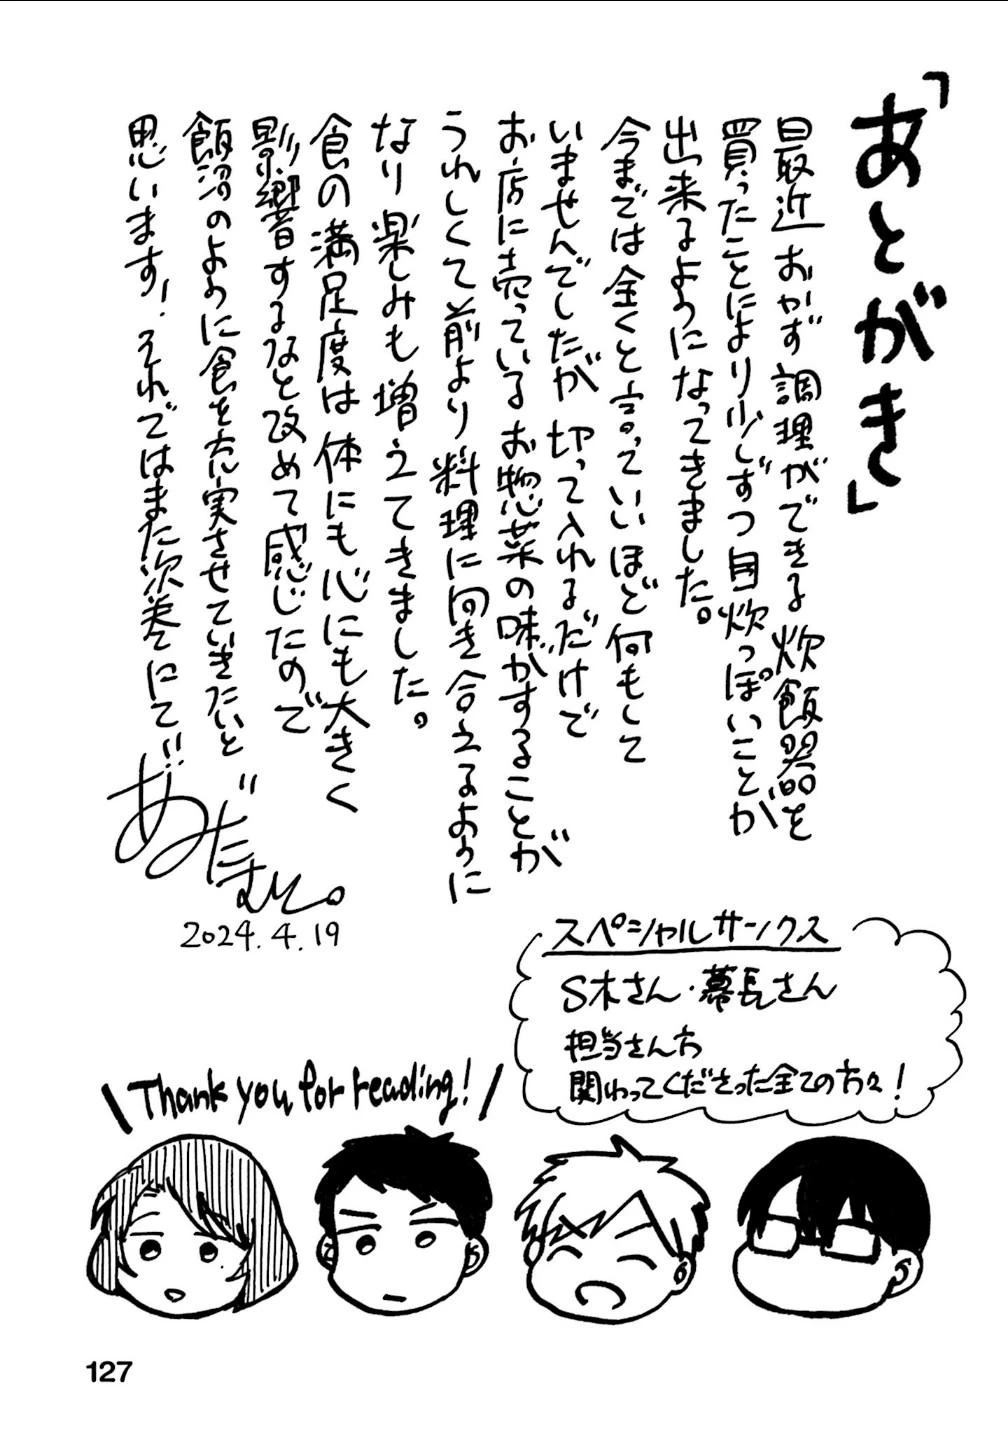 「あとがき」
最近おかず調理ができる炊飯器を
買ったことにより少しずつ自炊っぽいことが
出来るようになってきました。
今までは全くと言っていいほど何もして
いませんでしたが切って入れるだけで
お店に売っているお惣菜の味がすることが
うれしくて前より料理に向き合えるように
なり楽しみも増えてきました。
食の満足度は体にも心にも大きく
影響するなと改めて感じたので
飯沼のように食を充実させていきたいと
思います!それではまた次巻にて!!
あみだむく。
2024.4.19
スペシャルサンクス
S木さん・幕長さん
担当さん方
関わってくださった全ての方々!
\Thank you for reading!/
127